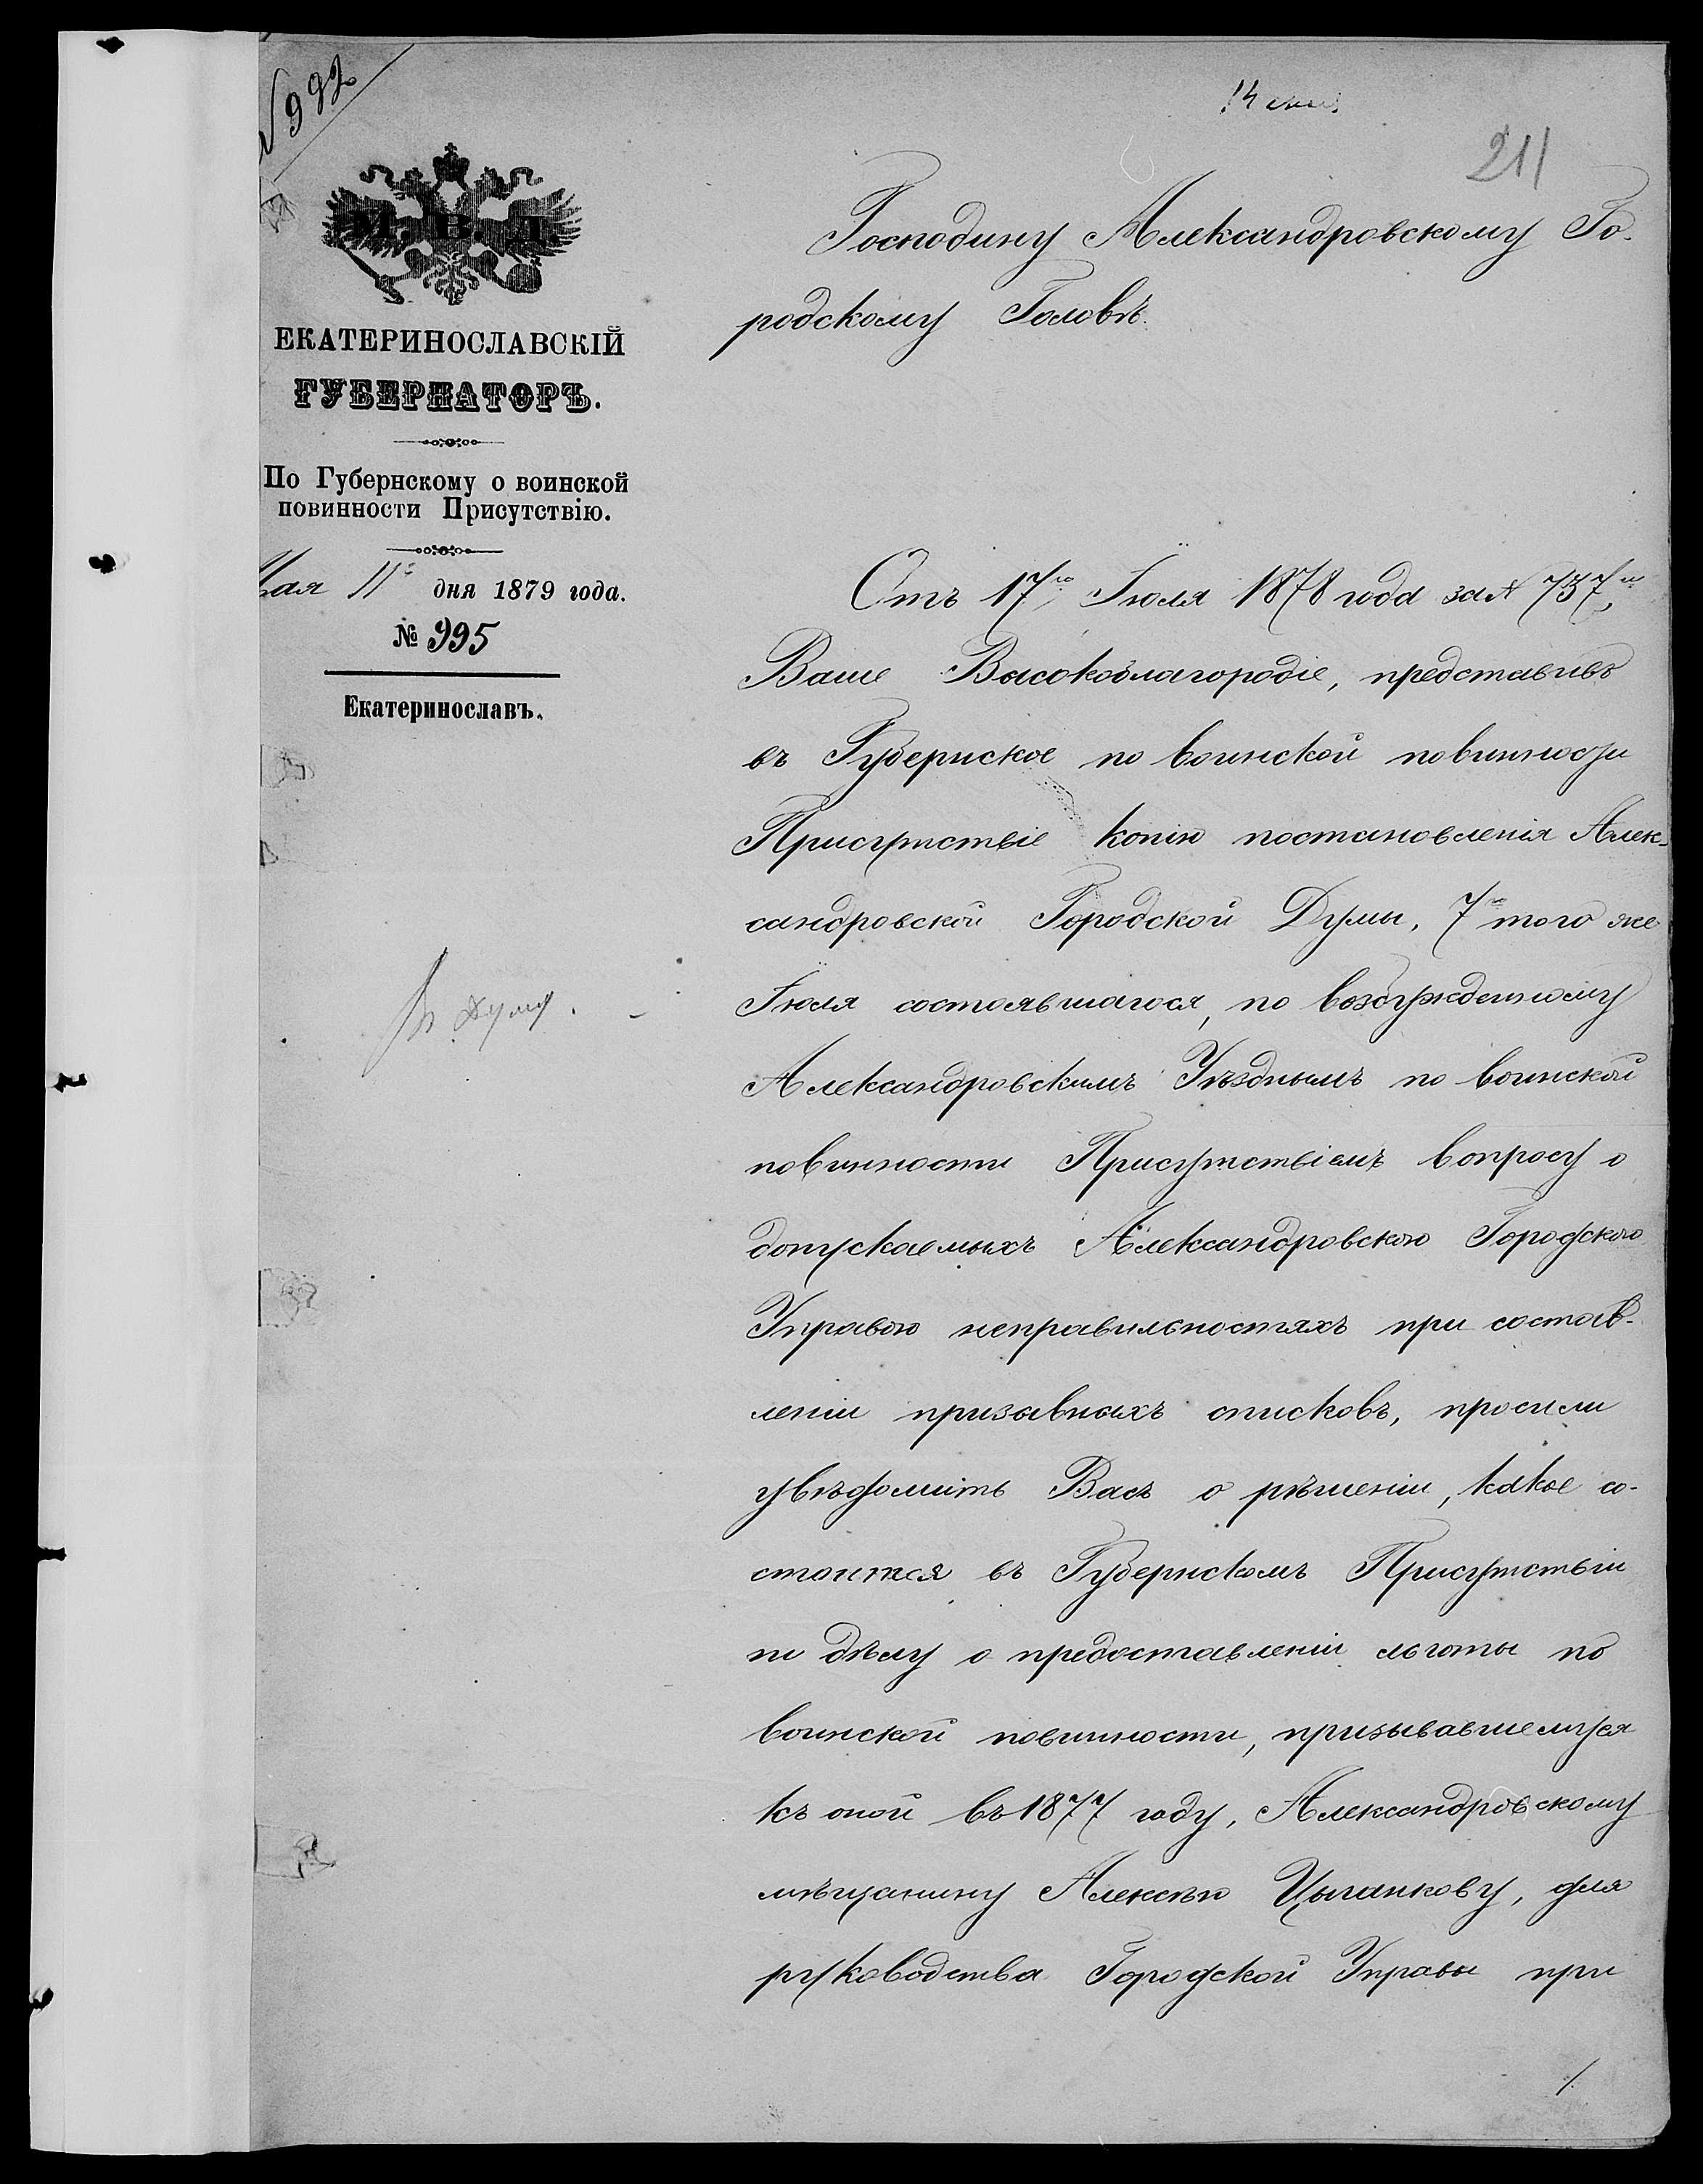 № 992
211
М. В. Д.
ЕКАТЕРИНОСЛАВСКІЙ
ГУБЕРНАТОРЪ.
По Губернскому о воинской
повинности Присутствію.
Мая 11 дня 1879 года.
№ 995
Екатеринославъ.
Въ Думу.
Господину Александровскому Го-
родскому Головѣ.
Отъ 17го Іюля 1878 года за № 737,
Ваше Высокоблагородіе, представивъ
въ Губернское по воинской повинности
Присутствіе копію постановленія Алек-
сандровской Городской Думы, 7го того же
Іюля состоявшагося, по возбужденному
Александровскимъ Уѣзднымъ по воинской
повинности Присутствіемъ вопросу о
допускаемыхъ Александровскою Городскою
Управою неправильностяхъ при состав-
леніи призывныхъ списковъ, просили
увѣдомить Васъ о рѣшеніи, какое со-
стоится въ Губернскомъ Присутствіи
по дѣлу о предоставленіи льготы по
воинской повинности, призывавшемуся
къ оной въ 1877 году, Александровскому
мѣщанину Алексѣю Цыганкову, для
руководства Городской Управы при